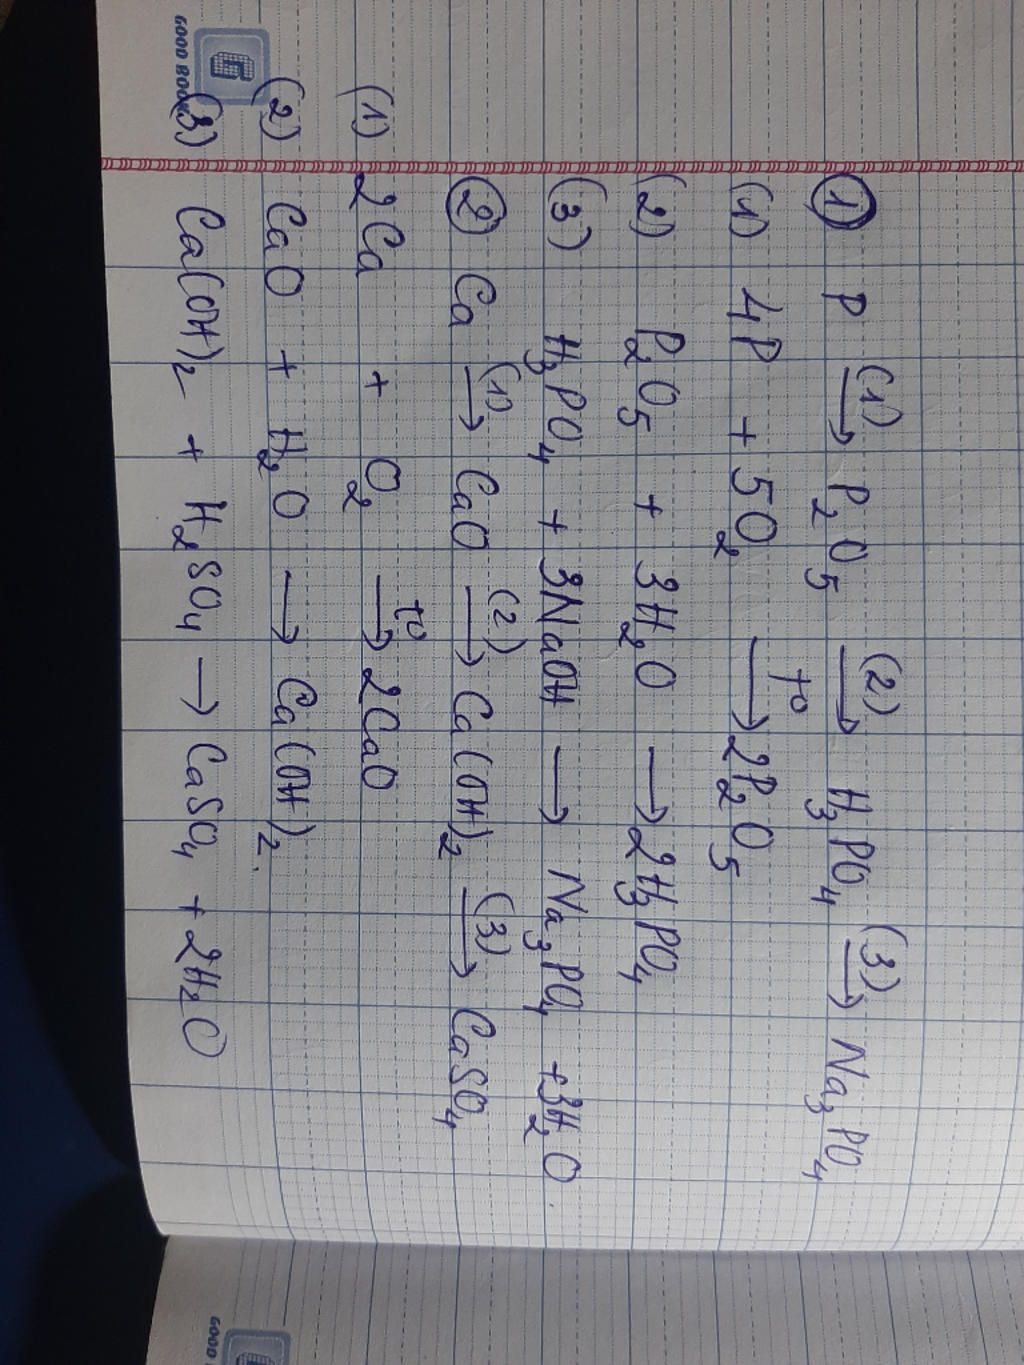 ① P (1)→ P₂O₅ (2)→ H₃PO₄ (3)→ Na₃PO₄
(1) 4P + 5O₂ t⁰→ 2P₂O₅
(2) P₂O₅ + 3H₂O → 2H₃PO₄
(3) H₃PO₄ + 3NaOH → Na₃PO₄ + 3H₂O.
② Ca (1)→ CaO (2)→ Ca(OH)₂ (3)→ CaSO₄
(1) 2Ca + O₂ t⁰→ 2CaO
(2) CaO + H₂O → Ca(OH)₂.
(3) Ca(OH)₂ + H₂SO₄ → CaSO₄ + 2H₂O
G
GOOD BOOK
GOOD